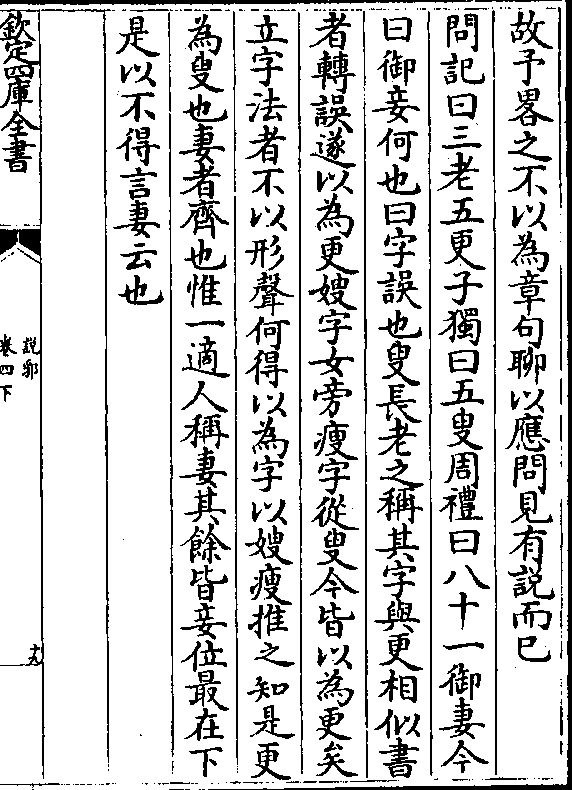 故予畧之不以為章句聊以應問見有説而已
問記曰三老五更子獨曰五叟周禮曰八十一御妻今
曰御妾何也曰字誤也叟長老之稱其字與更相似書
者轉誤遂以為更嫂字女旁瘦字從叟今皆以為更矣
立字法者不以形聲何得以為字以嫂瘦推之知是更
為叟也妻者齊也惟一適人稱妻其餘皆妾位最在下
是以不得言妻云也
欽定四庫全書
説郛
卷四下
十九